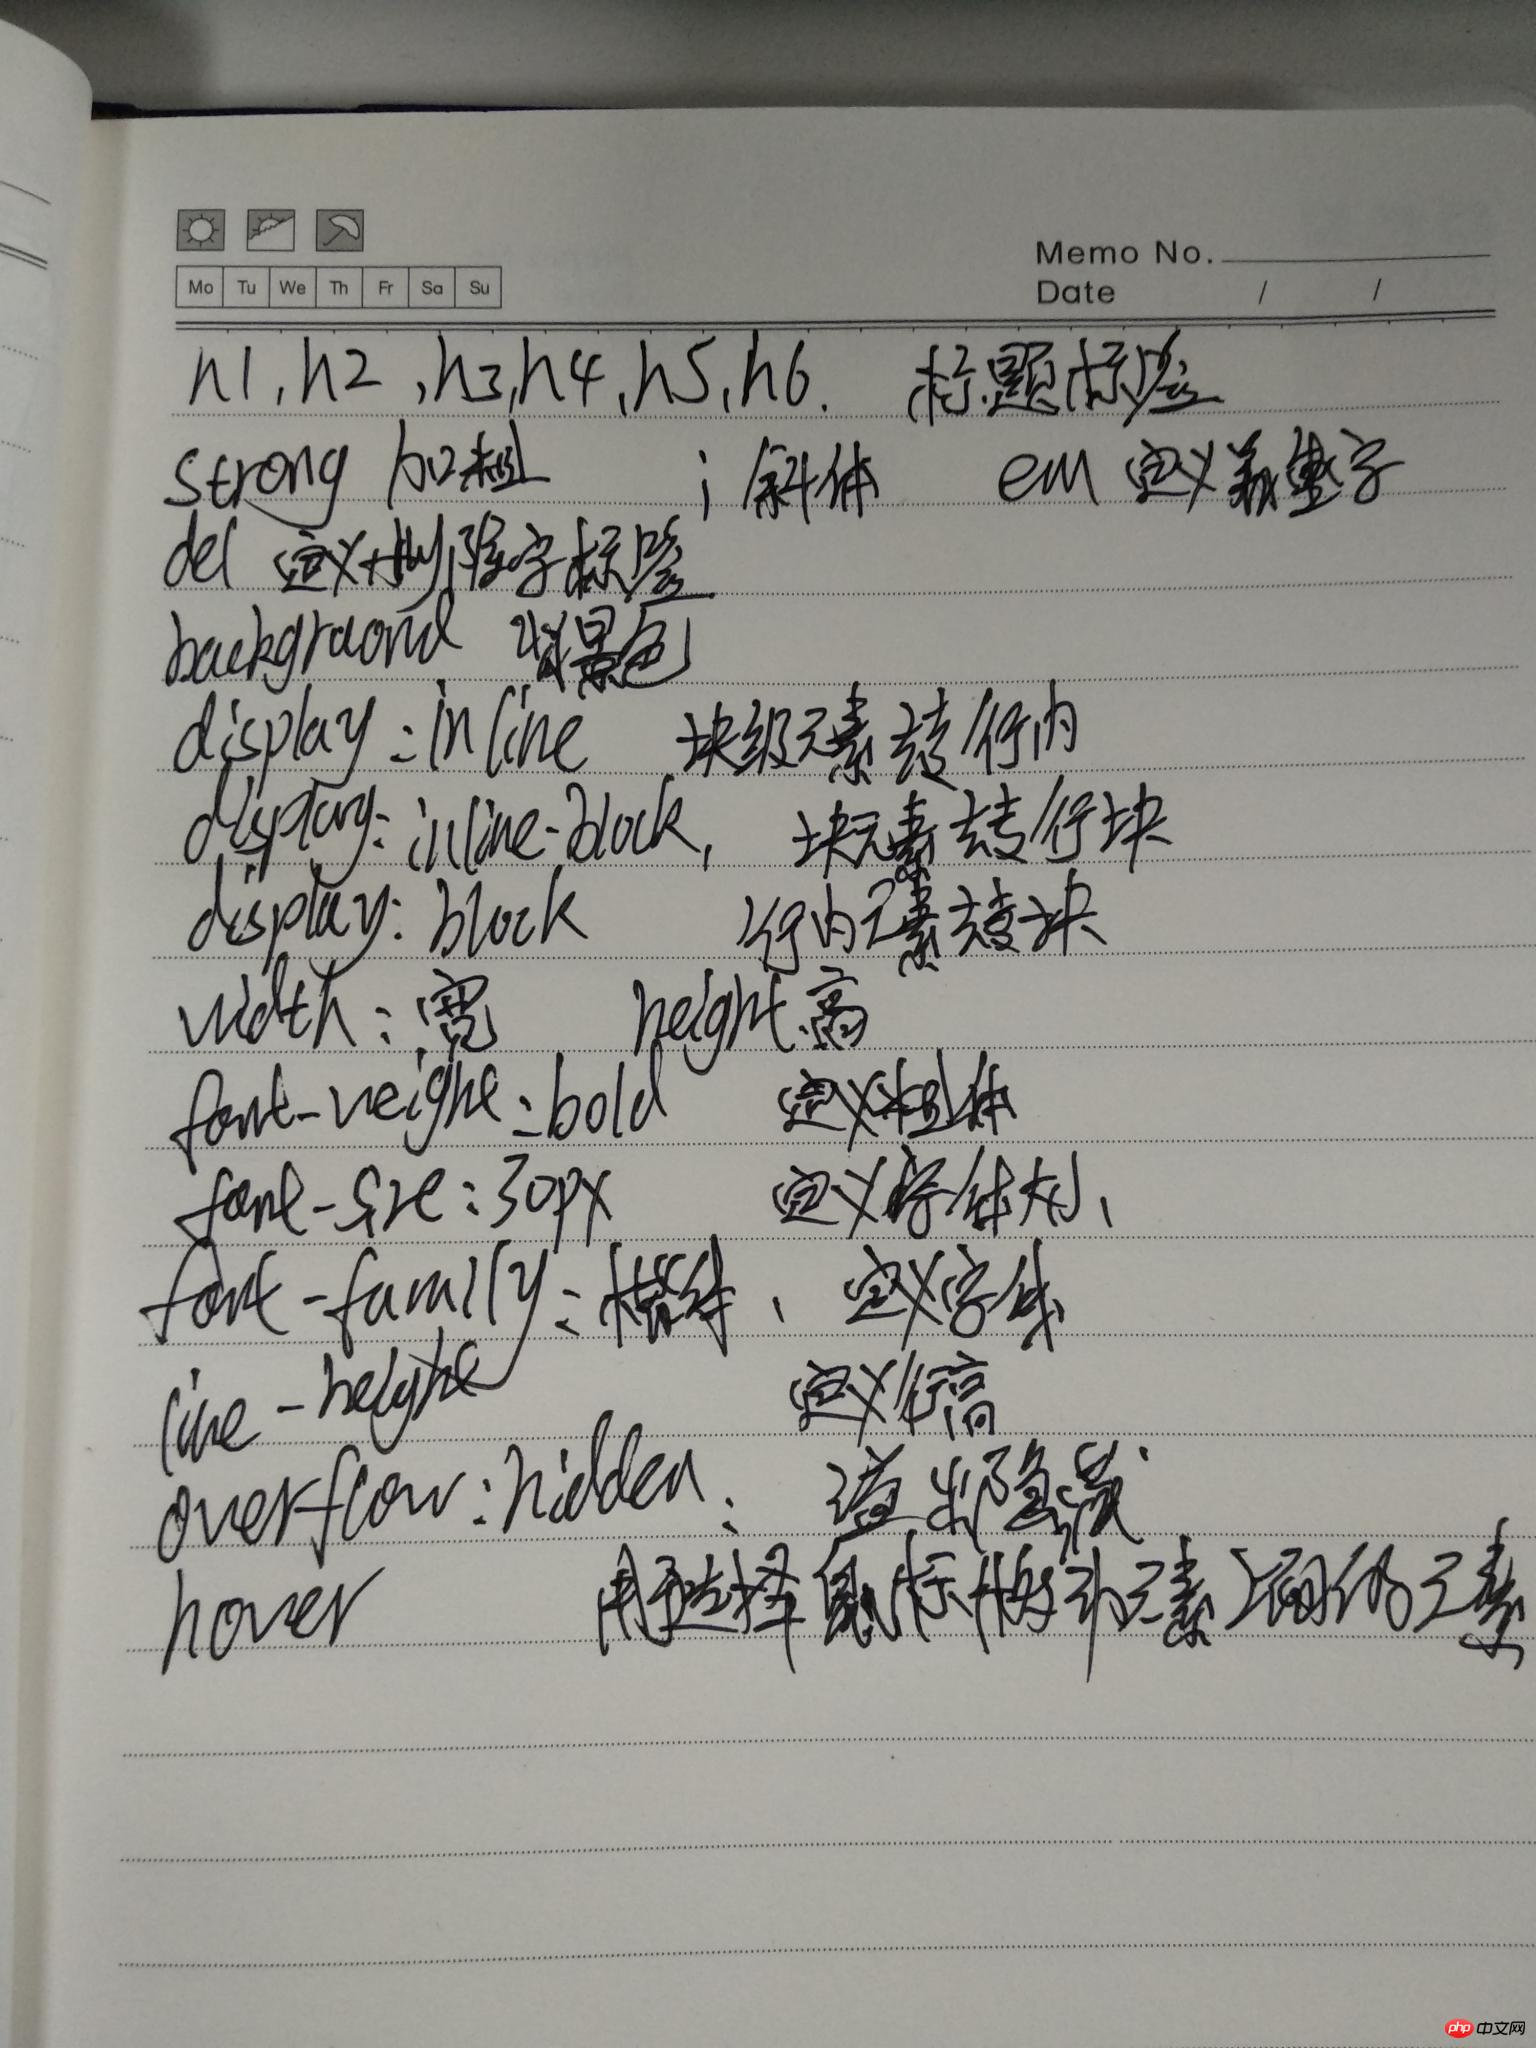 Memo No.
Mo Tu We Th Fr Sa Su
Date / /
h1,h2,h3,h4,h5,h6. 标题标签
strong 加粗 i 斜体 em 定义着重字
del 定义删除字标签
background 背景色
display:inline 块级元素转行内
display:inline-block, 块元素转行块
display:block 行内元素转块
width:宽 height:高
font-weight:bold 定义粗体
font-size:30px 定义字体大小
font-family:楷体、定义字体
line-height 定义行高
overflow:hidden; 溢出隐藏
hover 用于选择鼠标 元素上面的元素
php 中文网